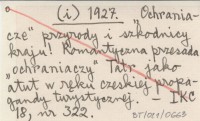 (i) 1927. "Ochrania-
cze" przyrody i szkodnicy
kraju! Romantyczna przesada
"ochraniaczy" Tatr jako
atut w ręku czeskiej propa-
gandy turystycznej. – IKC
18, nr 322.
BT/010/0663